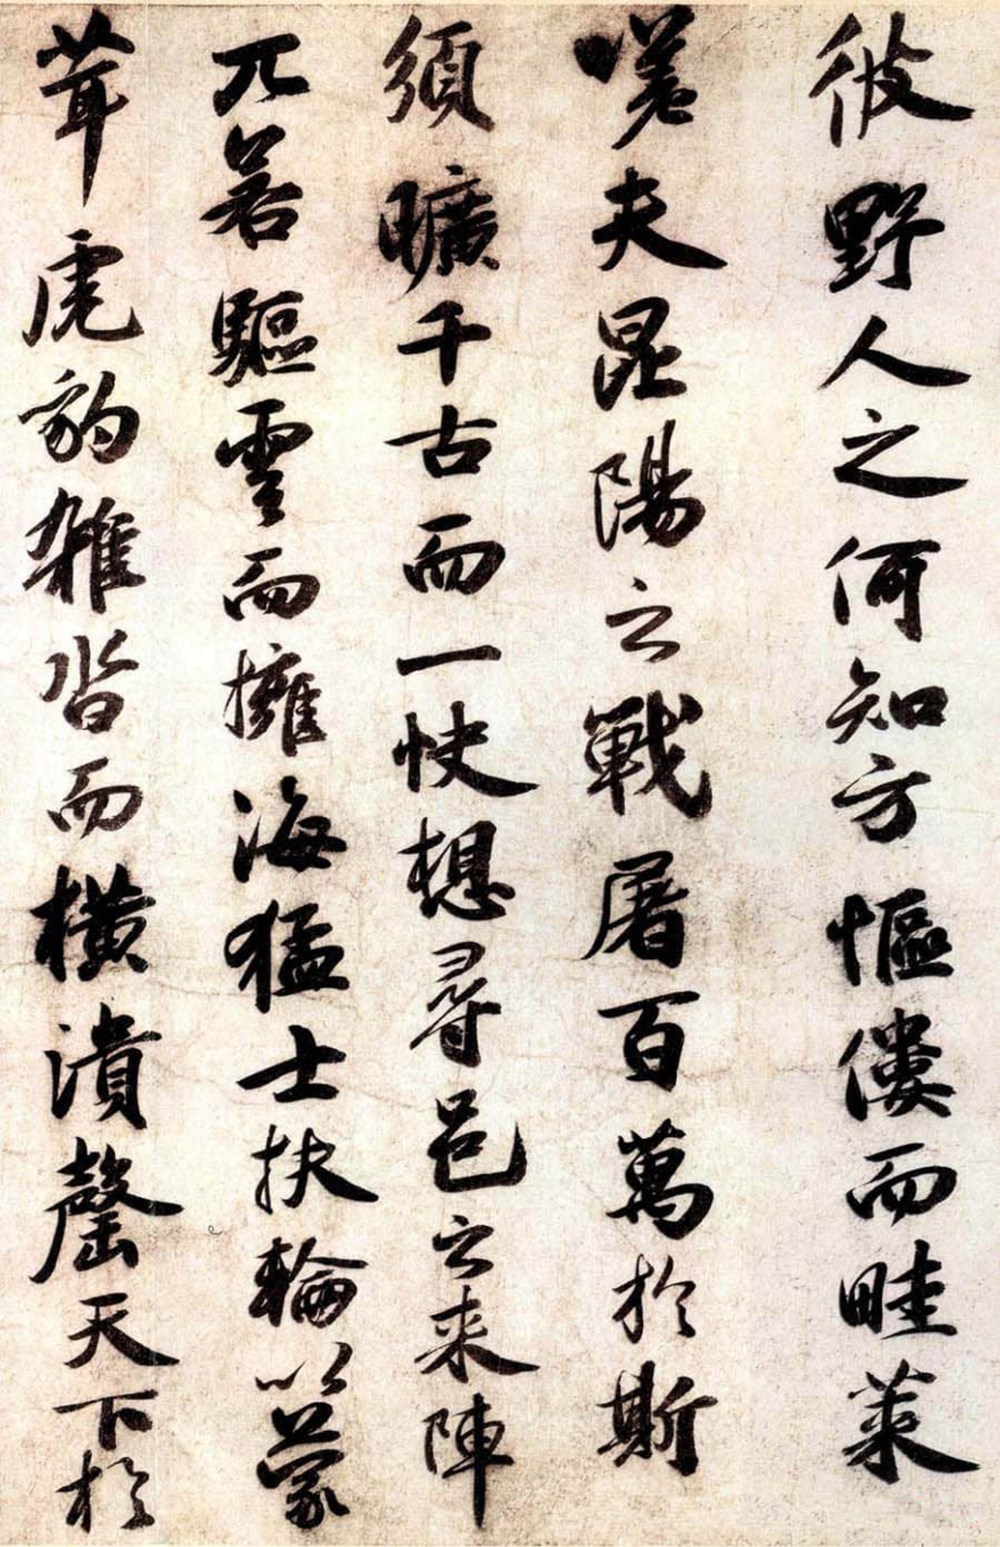 彼野人之何知方傴僂而畦菜
嗟夫昆陽之戰屠百萬於斯
須曠千古而一快想尋邑之来陣
兀若驅雲而擁海猛士扶輪以蒙
茸虎豹雜沓而橫潰罄天下於